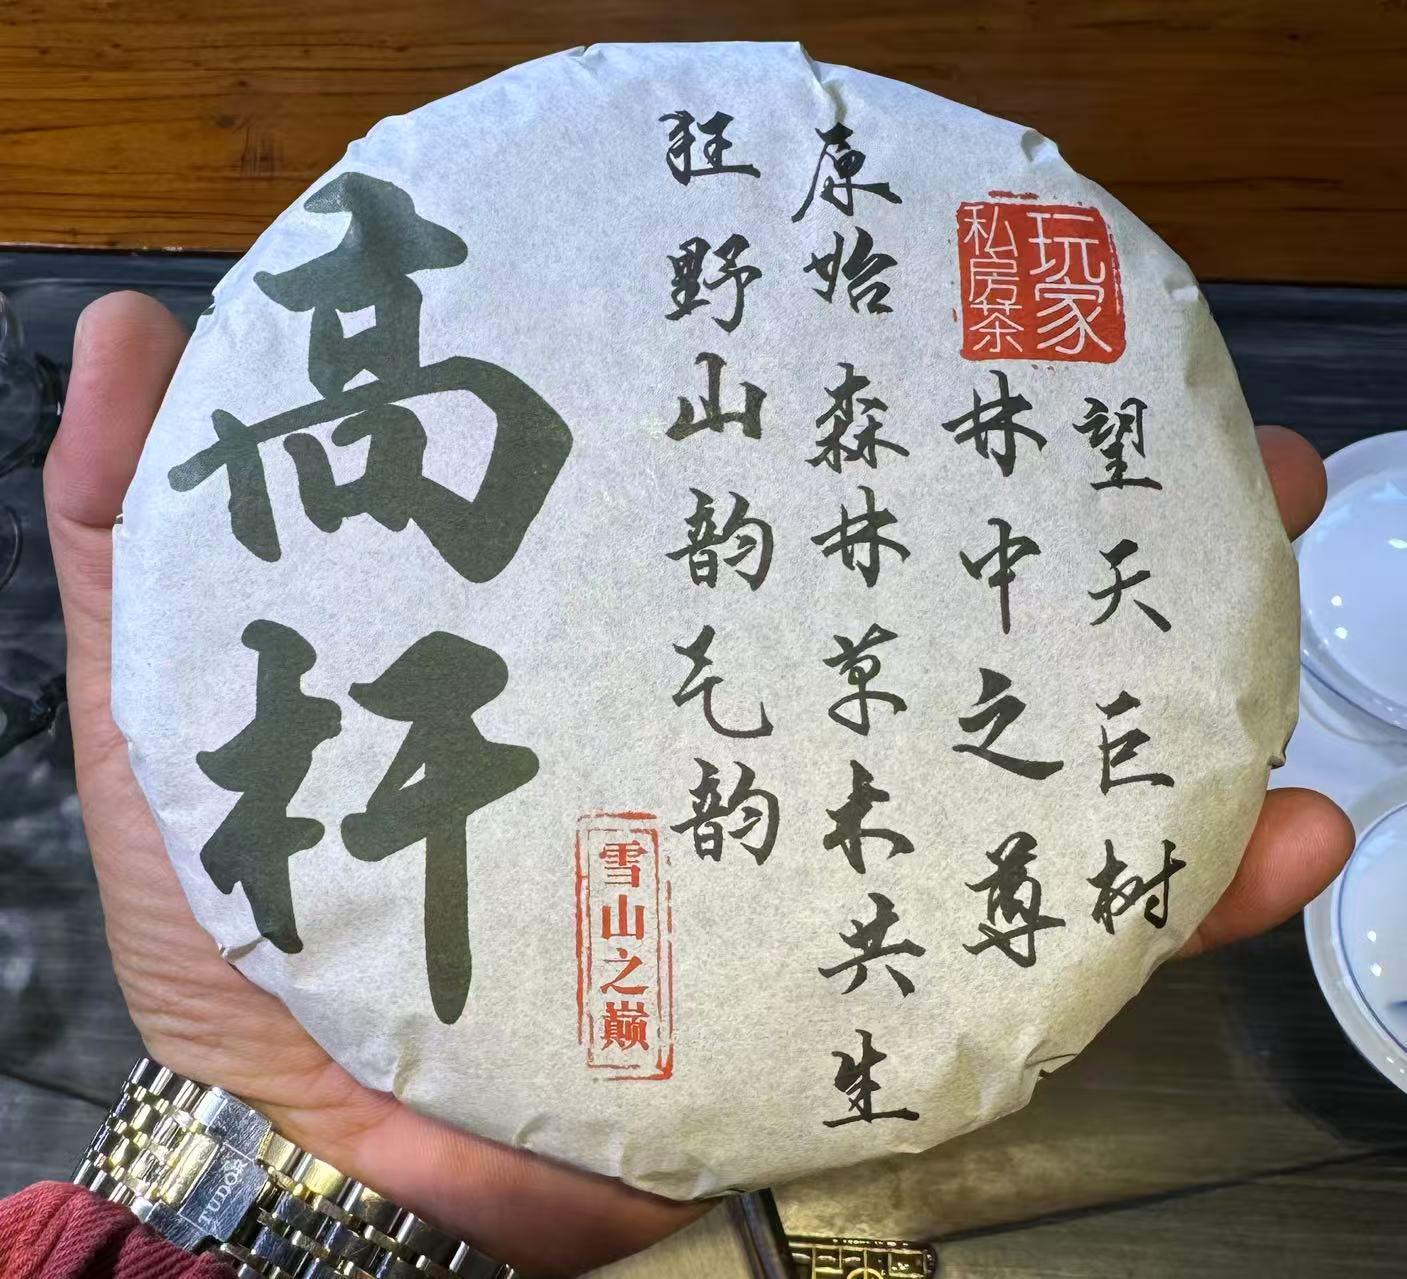 玩家
私房茶
望天巨树
林中之尊
原始森林草木共生
狂野山韵气韵
雪山之巅
高杆
TUDOR